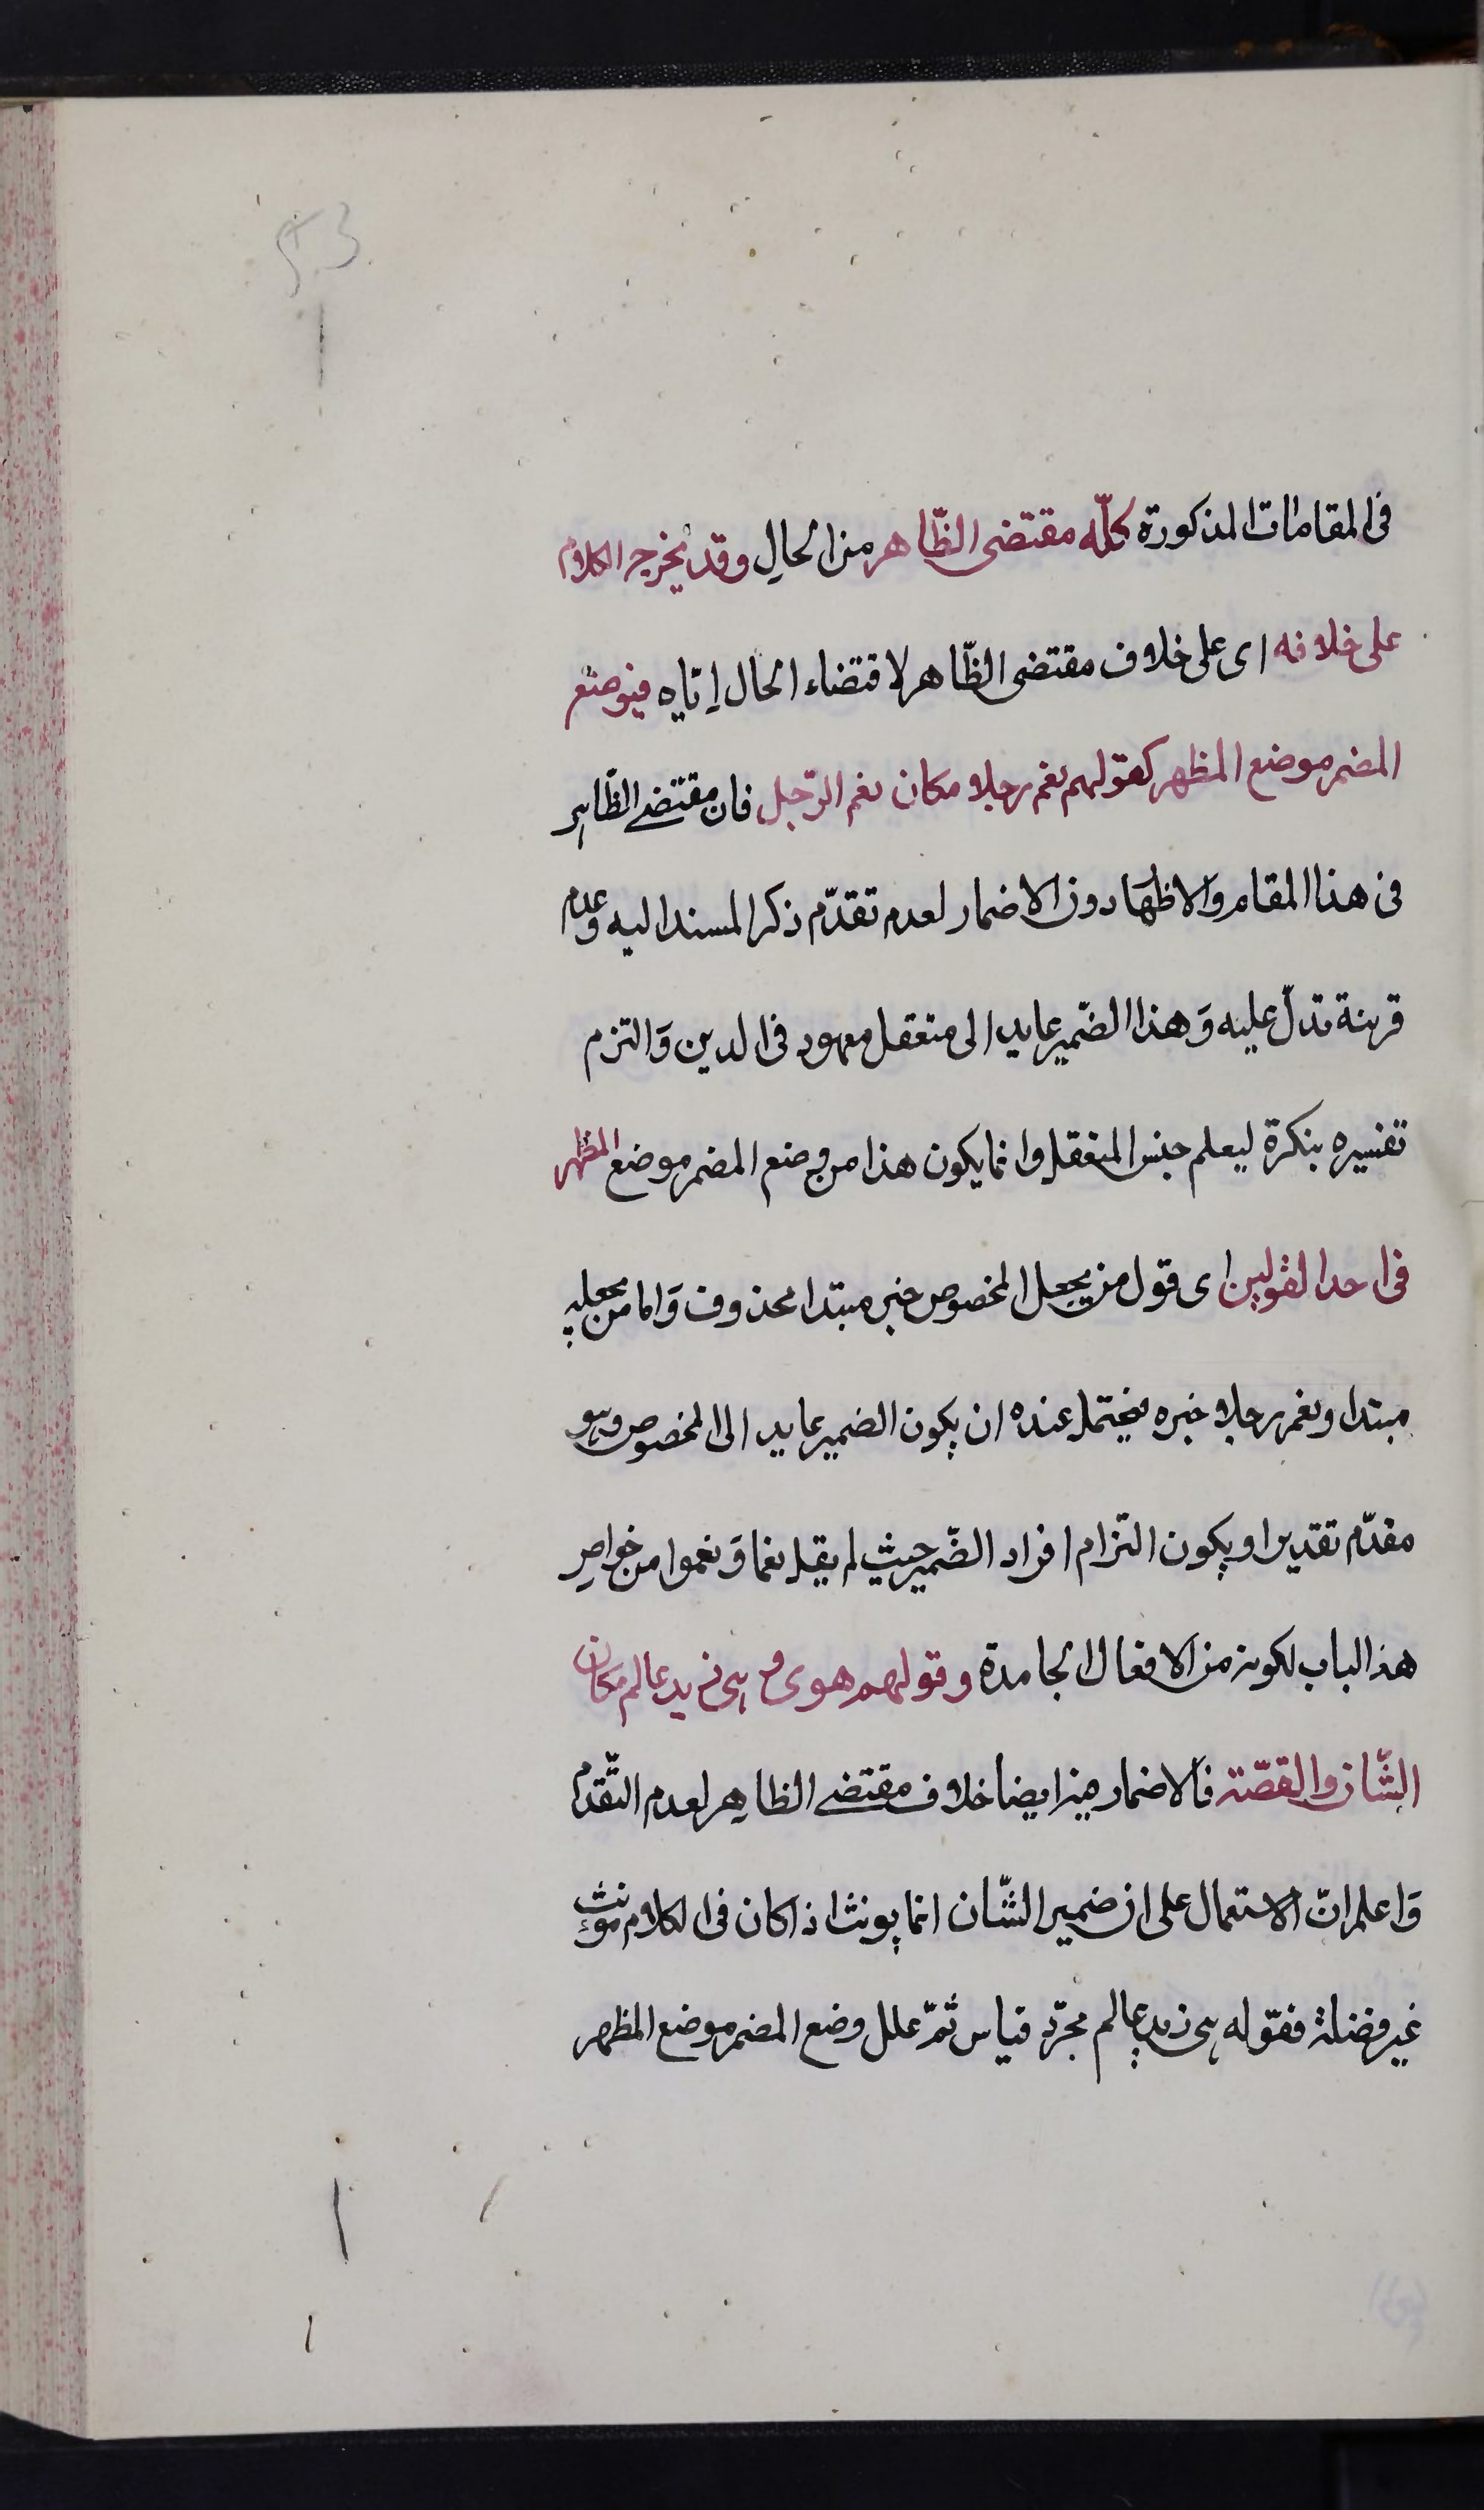 53
فى المقامات المذكورة كلّه مقتضى الظّاهر من الحالِ وقد يخرج الكلام
على خلافه اى على خلاف مقتضى الظّاهر لاقتضاء الحال إيّاه فيوضع
المضمر موضع المظهر كقولهم نعم رجلا مكان نعم الرّجل فان مقتضى الظّاهر
فى هذا المقام والاظهار دون الاضمار لعدم تقدّم ذكر المسند اليه وعدم
قرينة تدلّ عليه وَهذا الضّمير عايد الى متعقل معهود فى الدين وَالتزم
تفسيره بنكرة ليعلم جنس المتعقل وانما يكون هذا من وضع المضمر موضع المظهر
فى احد القولين اى قول من يجعل المخصوص خبر مبتدا محذوف وَاما من يجعله
مبتدا ونعم رجلا خبره فيحتمل عنده ان يكون الضمير عايد الى المخصوص وهو
مقدّم تقديرا ويكون التزام افراد الضّمير حيث لم يقل نعما وَنعموا من خواص
هذا الباب لكونه من الافعال الجامدة وقولهم هو او هى زيد عالم مكان
الشّان والقصّة فالاضمار فيه ايضا خلاف مقتضى الظاهر لعدم التّقدّم
وَاعلم انّ الاستعمال على ان ضمير الشّان انما يونث اذا كان فى الكلام مونث
غير فضلة فقوله هى زيد عالم مجرّد قياس ثمّ علل وضع المضمر موضع المظهر